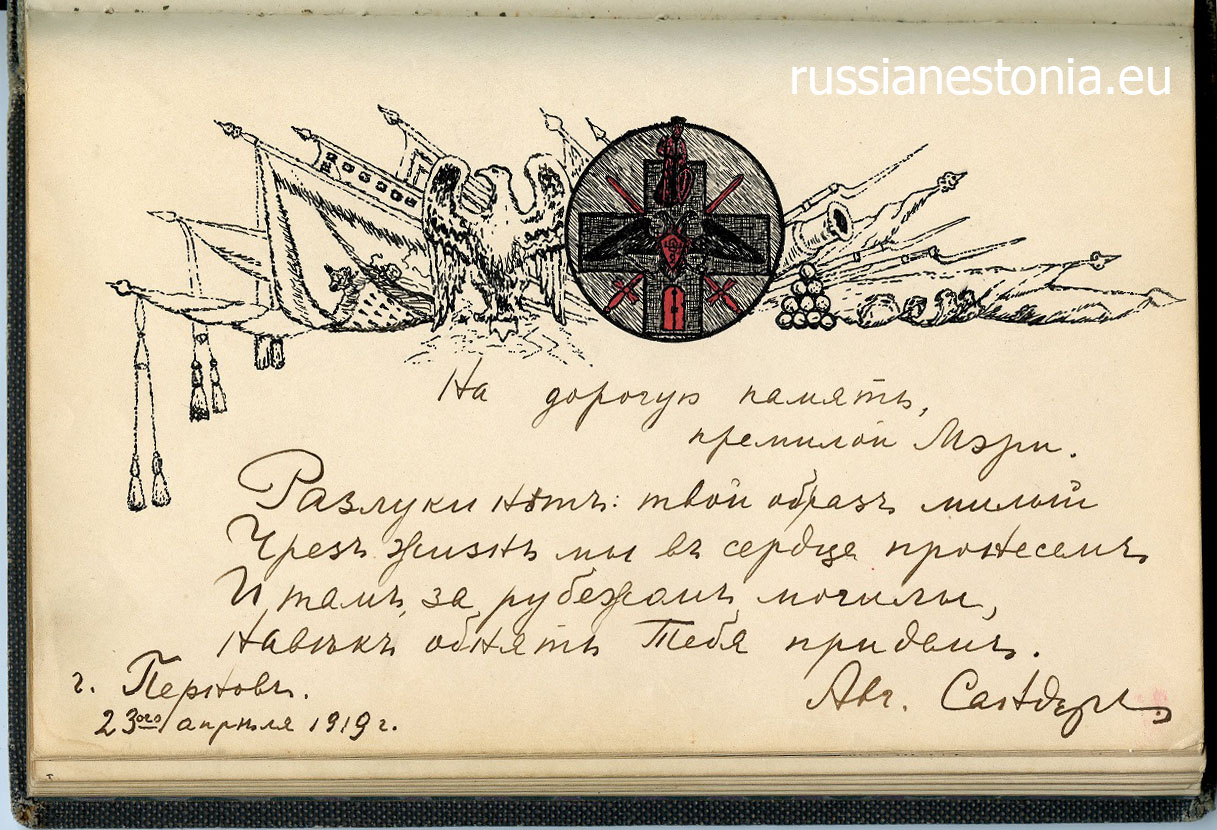 russianestonia.eu
На дорогую память,
премилой Мэри.
Разлуки нѣтъ: твой образъ милый
Чрезъ жизнь мы въ сердце пронесемъ
И тамъ, за рубежомъ могилы,
Навѣкъ обнять Тебя придемъ.
г. Перновъ.
Авг. Сандеръ
23ого апрѣля 1919 г.